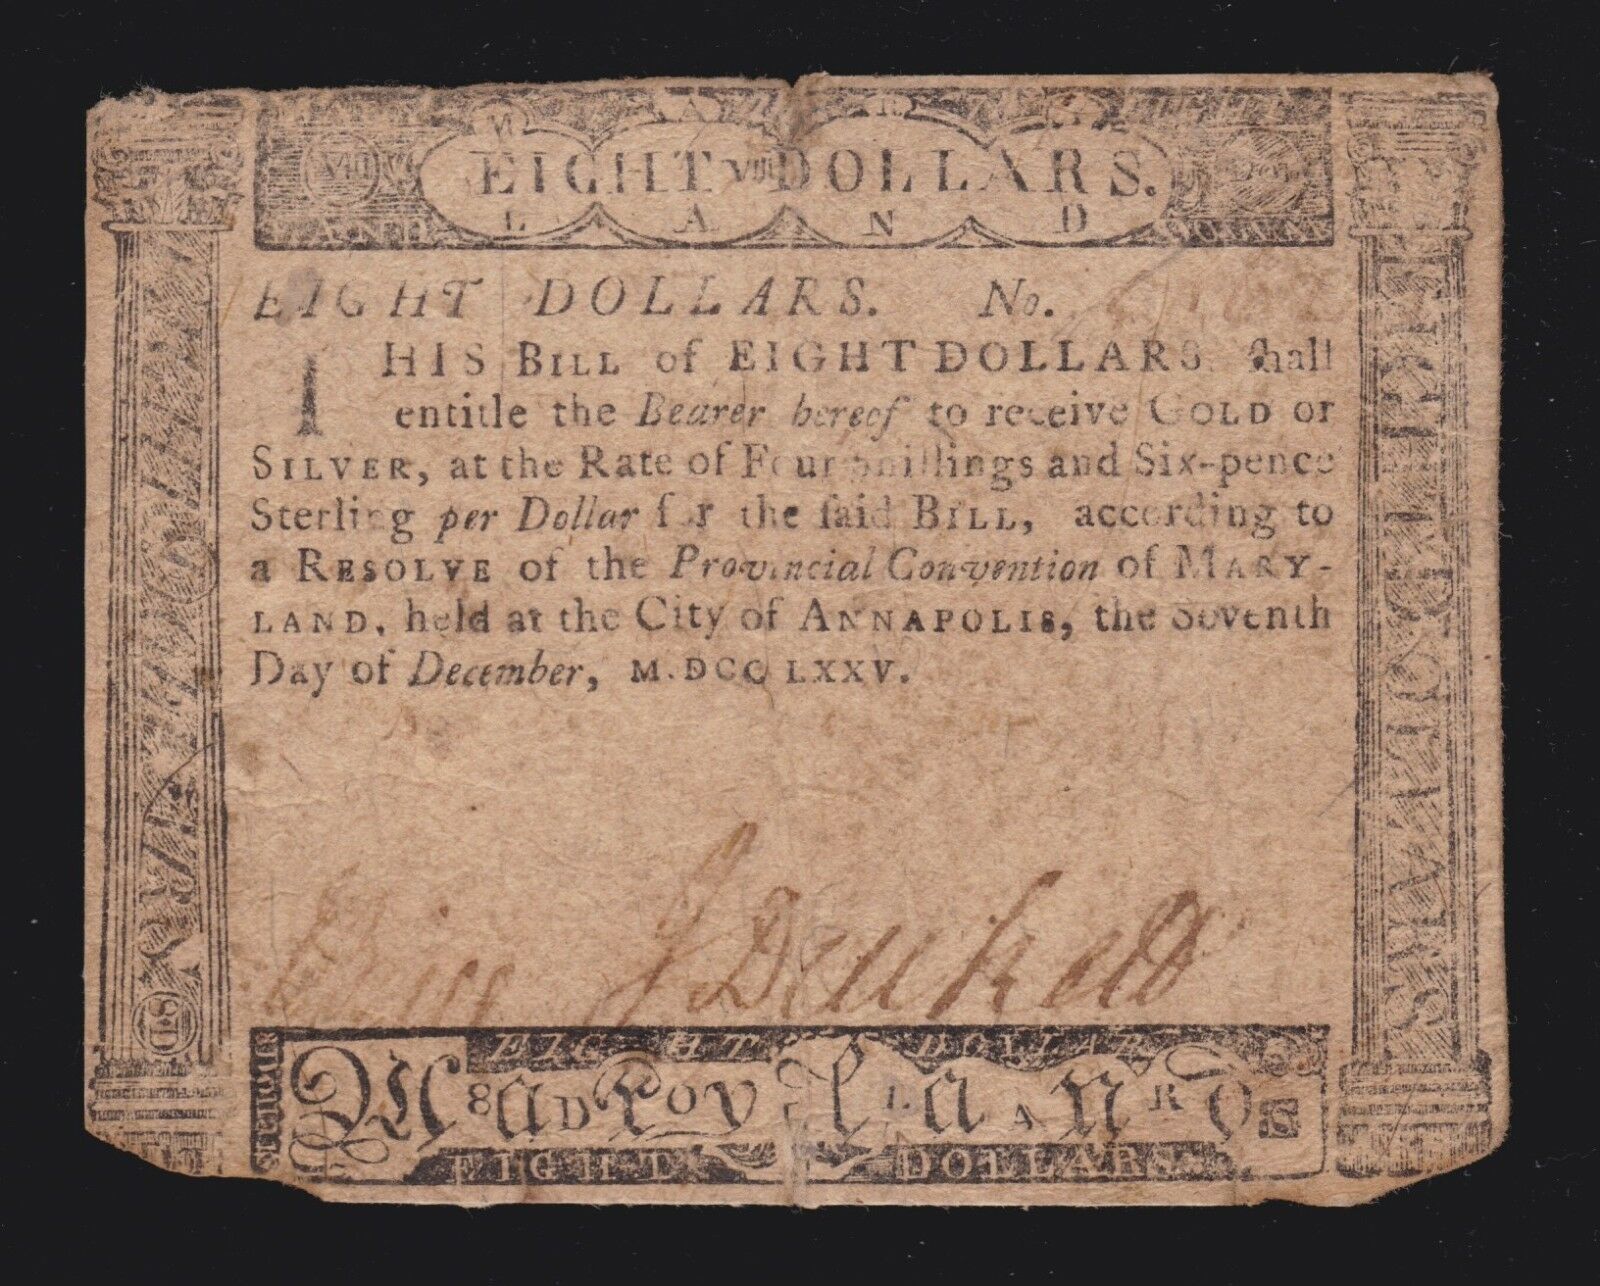 M A R Y
EIGHT VIII DOLLARS.
L A N D
EIGHT DOLLARS. No.
THIS BILL of EIGHT DOLLARS, ſhall
entitle the Bearer hereof to receive GOLD or
SILVER, at the Rate of Four Shillings and Six-pence
Sterling per Dollar for the ſaid BILL, according to
a RESOLVE of the Provincial Convention of MARY-
LAND, held at the City of ANNAPOLIS, the Seventh
Day of December, M.DCC LXXV.
J Duckett
EIGHT DOLLARS
Maryland
8 D O L L A R S
EIGHT DOLLARS
EIGHT DOLLARS